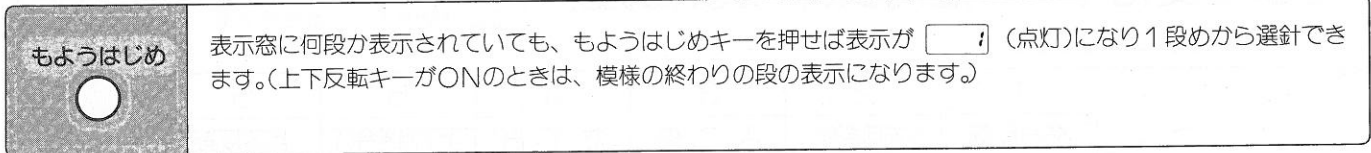 もようはじめ
表示窓に何段か表示されていても、もようはじめキーを押せば表示が 1 (点灯)になり1段めから選針でき
ます。(上下反転キーがONのときは、模様の終わりの段の表示になります。)